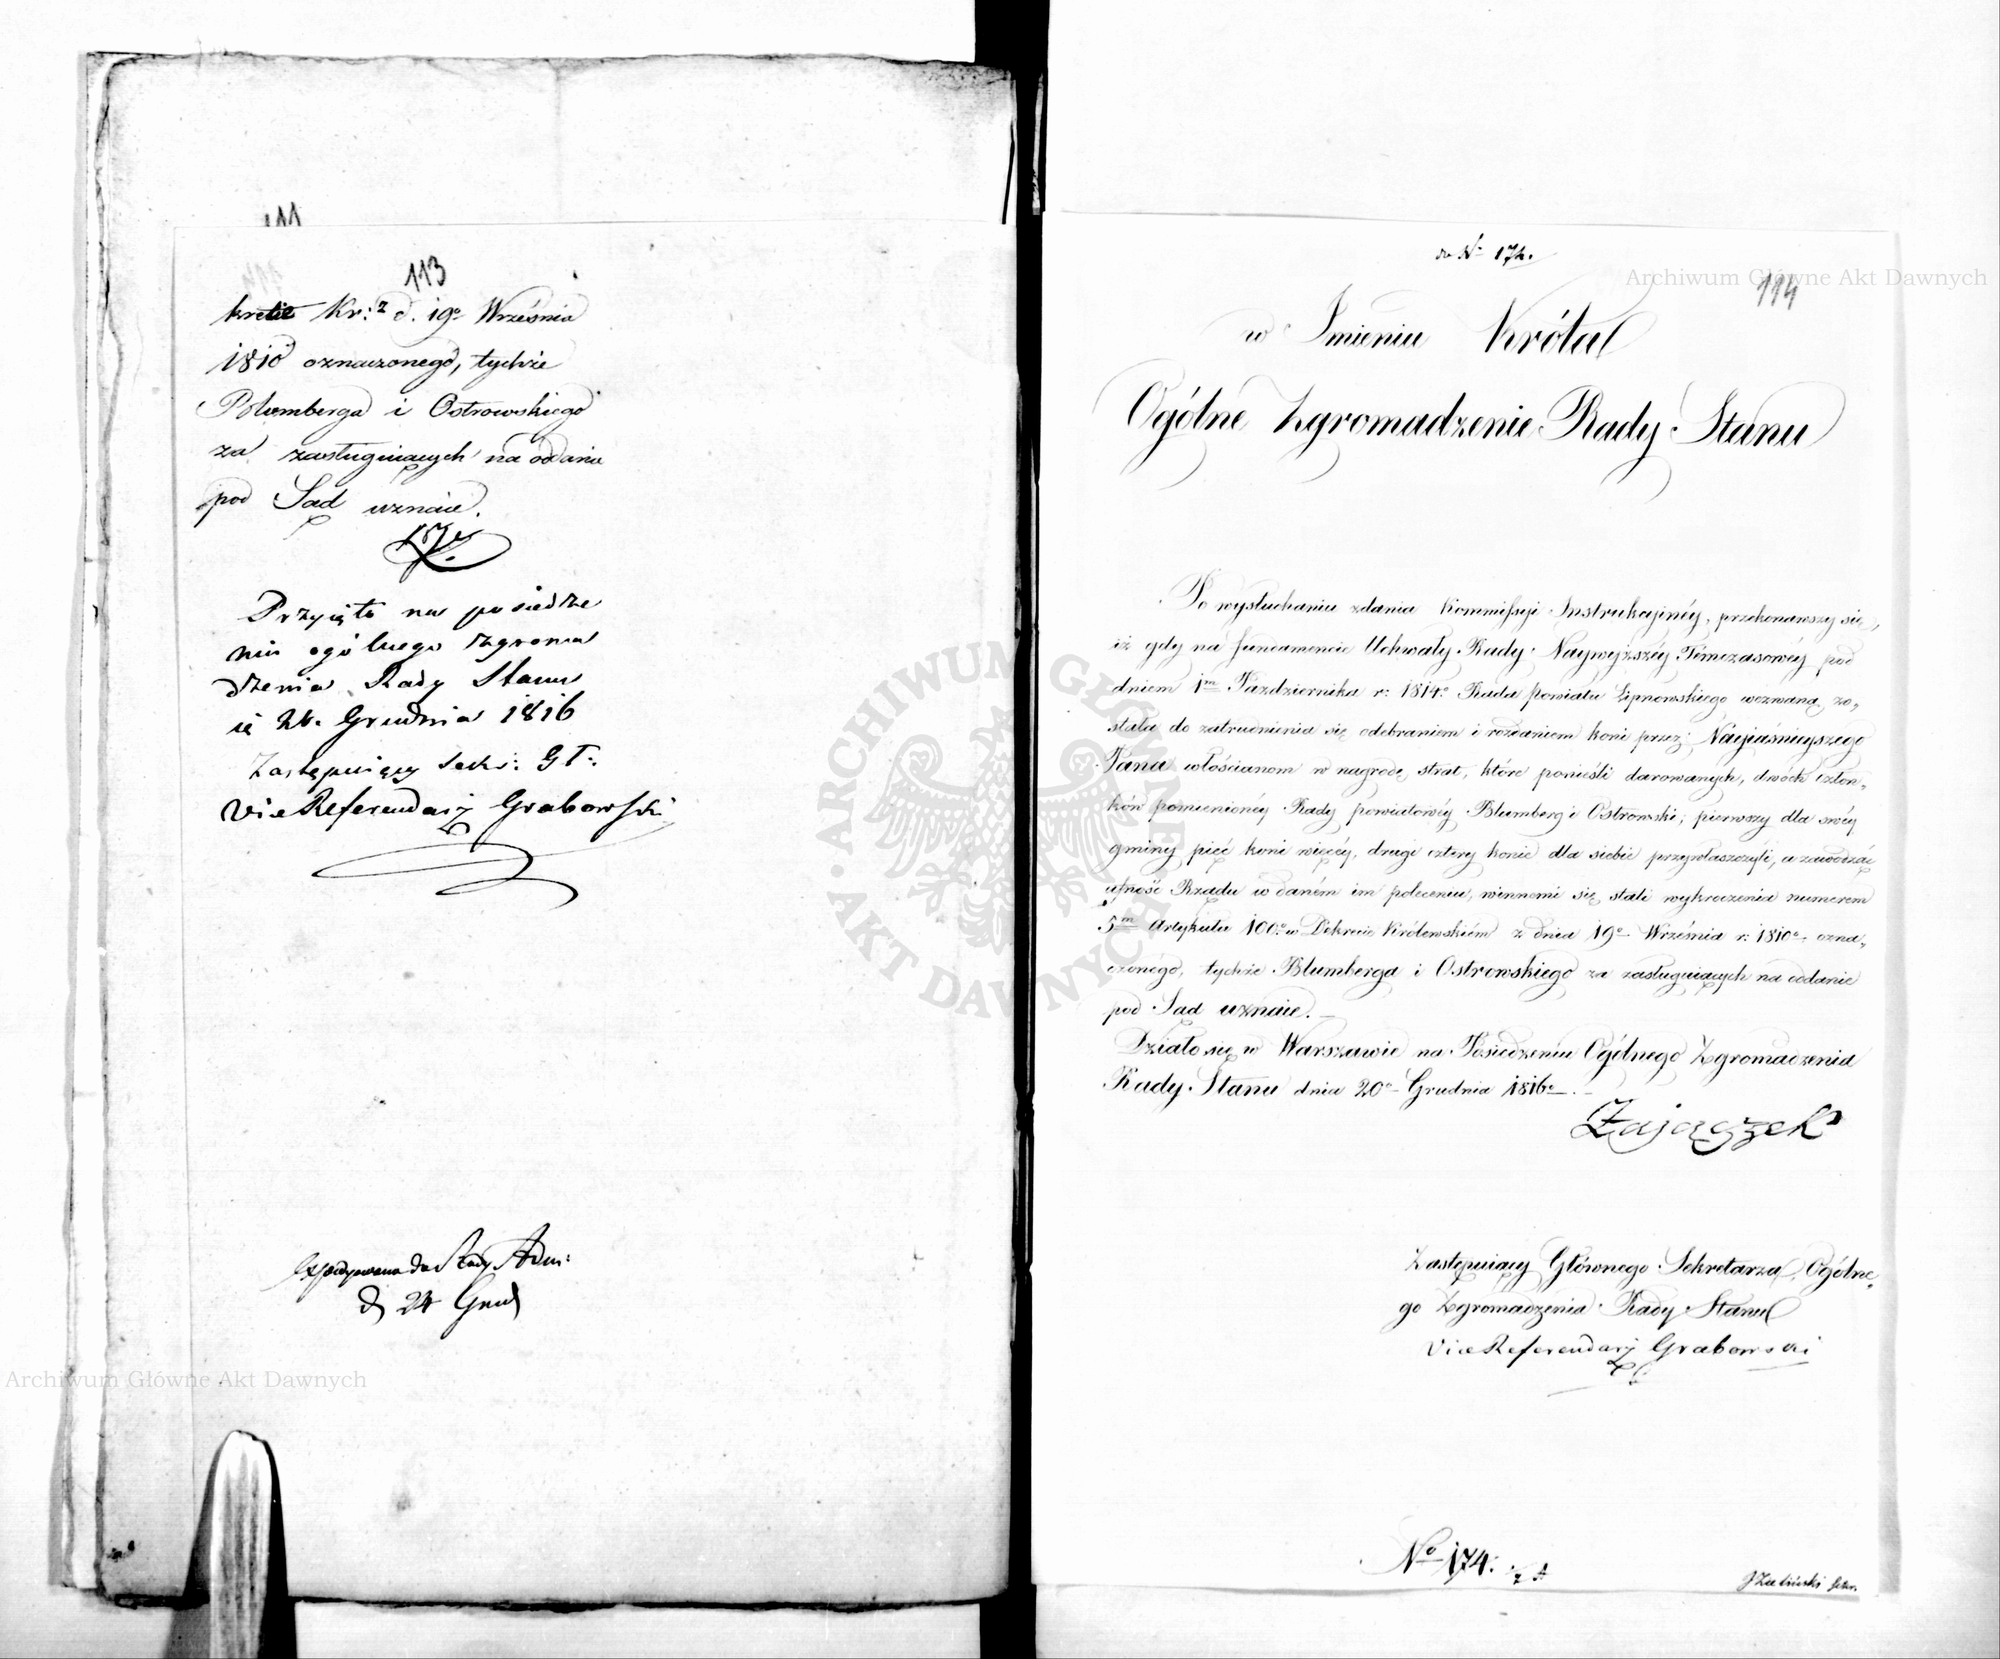 111
113
krecie Kr: z d. 19o Września
1810 oznaczonego, tychże
Blumberga i Ostrowskiego
za zasługuiących na oddanie
pod Sąd uznaie.
Przyięto na posiedze
niu ogólnego zgroma
dzenia Rady Stanu
Grudnia 1816
Zastępuiący Sekr: Gł:
ViceReferendarz Grabowski
Expedyowano do Rady Adm:
d 24 Grud
Archiwum Główne Akt Dawnych
do No 174.
Archiwum Główne Akt Dawnych
114
w Imieniu Króla
Ogólne Zgromadzenie Rady Stanu
Po wysłuchaniu zdania Kommissyi Instrukcyinéy, przekonawszy się,
iż gdy na fundamencie Uchwały Rady Naywyższéy Tymczasowéy pod
dniem 1m Października r: 1814o Rada powiatu Lipnowskiego wezwaną zo„
stała do zatrudnienia się odebraniem i rozdaniem koni przez Nayiaśnieyszego
Pana włościanom w nagrodę strat, które ponieśli darowanych, dwóch człon„
ków pomienionéy Rady powiatowéy Blumberg i Ostrowski, pierwszy dla swéy
gminy pięć koni więcéy, drugi cztery konie dla siebie przywłaszczyli, a zawodząc
ufność Rządu w daném im poleceniu, winnemi się stali wykroczenia numerem
5m Artykułu 100o w Dekrecie Królewskiém z dnia 19o Września r: 1810o ozna„
czonego, tychże Blumberga i Ostrowskiego za zasługuiących na oddanie
pod Sąd uznaie.
Działo się w Warszawie na Posiedzeniu Ogólnego Zgromadzenia
Rady Stanu dnia 20o Grudnia 1816o
Zajączek
Zastępuiący Głównego Sekretarza Ogólne„
go Zgromadzenia Rady Stanu
ViceReferendarz Grabowski
No 174.
ARCHIWUM GŁÓWNE AKT DAWNYCH